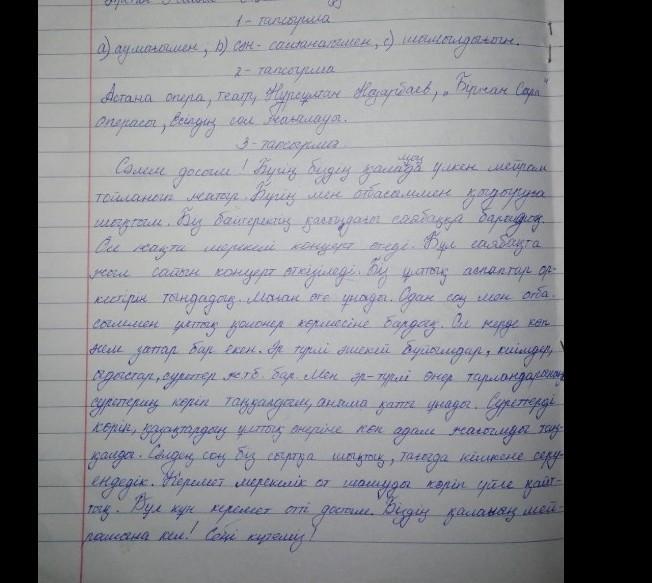 1-тапсырма
а) аумағымен, b) сән-салтанатымен, c) шымылдығын.
2-тапсырма
Астана опера, театр, Нұрсұлтан Назарбаев, „Біржан Сара"
операсы, Есілдің сол жағалауы.
3-тапсырма.
Сәлем досым! Бүгін біздің қаламызда үлкен мейрам
тойланып жатыр. Бүгін мен отбасыммен қыдыруға
шықтым. Біз бәйтеректің қасындағы саябаққа бардық.
Ол жақта мерекелі концерт өтеді. Бұл саябақта
жыл сайын концерт өткізіледі. Біз ұлттық аспаптар ор-
кестрін тыңдадық. Маған өте ұнады. Одан соң мен отба-
сыммен ұлттық қолөнер көрмесіне бардық. Ол жерде көп-
теген заттар бар екен. Әр түрлі әшекей бұйымдар, киімдер,
ыдыстар, суреттер ж.т.б. бар. Мен әр-түрлі өнер тарландарының
суреттерін көріп таңқалдым, анама қатты ұнады. Суреттерді
көріп, қазақтардың ұлттық өнеріне көп адам жағымды таң-
қалды. Сәлден соң біз сыртқа шықтық, тағыда кішкене серу-
ендедік. Керемет мерекелік от шашуды көріп үйге қайт-
тық. Бұл күн керемет өтті достым. Біздің қаланың мей-
рамына кел! Сені күтеміз!